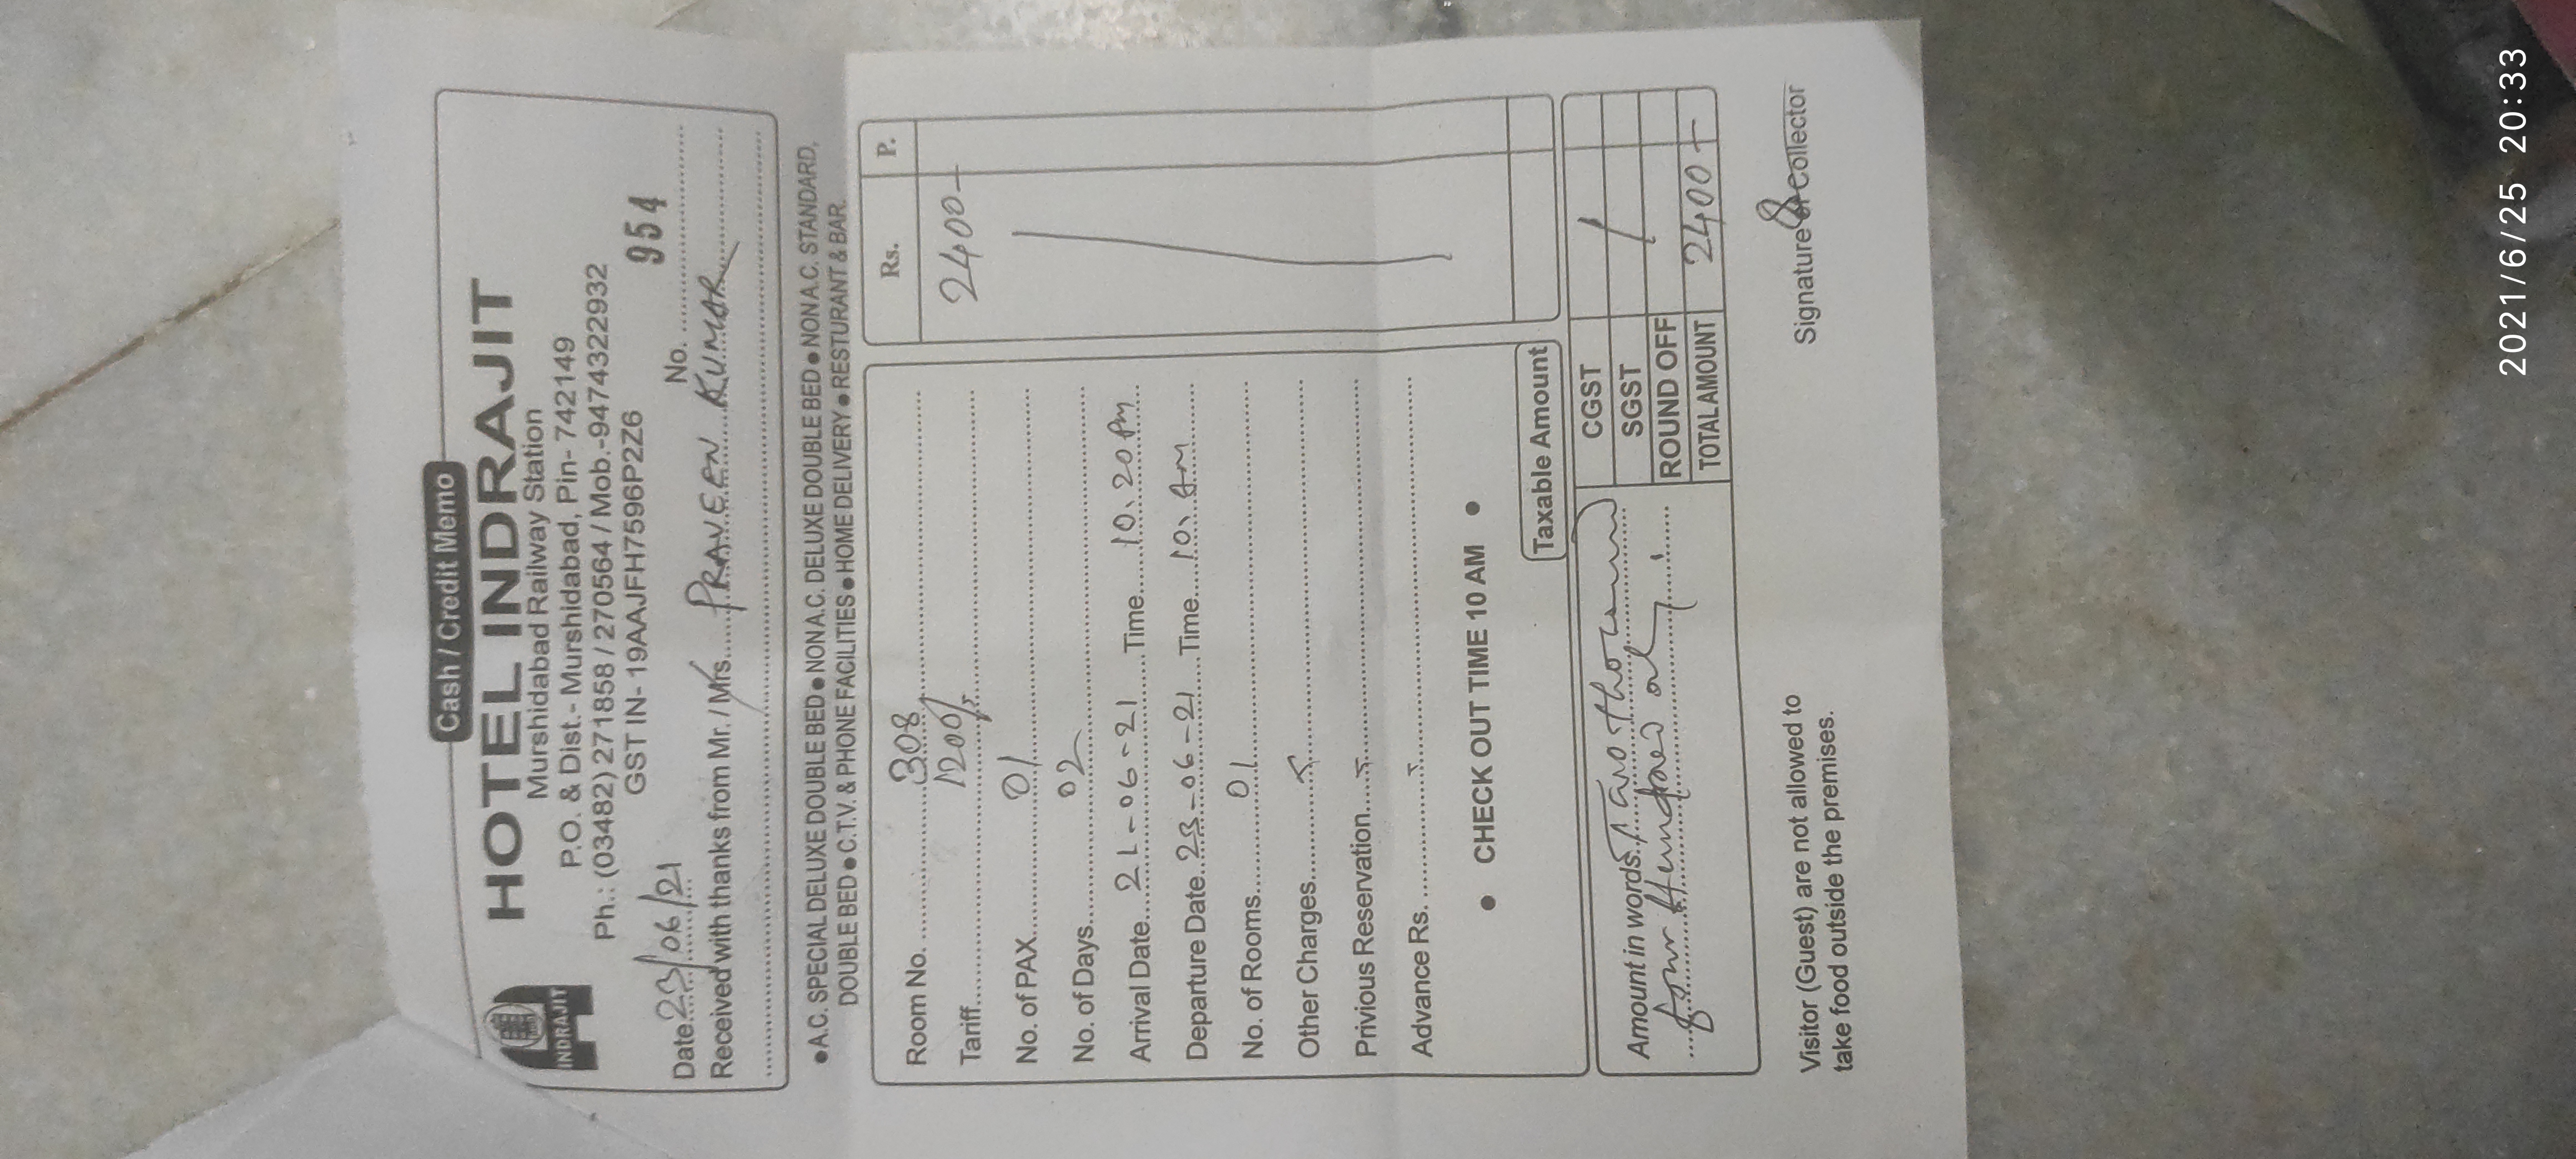 Cash / Credit Memo
INDRAJIT
HOTEL INDRAJIT
Murshidabad Railway Station
P.O. & Dist.- Murshidabad, Pin- 742149
Ph.: (03482) 271858 / 270564 / Mob.-9474322932
GST IN- 19AAJFH7596P2Z6
954
Date 23/06/21 No.
Received with thanks from Mr. / Mrs. PRAVEEN KUMAR
●A.C. SPECIAL DELUXE DOUBLE BED ● NON A.C. DELUXE DOUBLE BED ● NON A.C. STANDARD,
DOUBLE BED ● C.T.V. & PHONE FACILITIES ● HOME DELIVERY ● RESTURANT & BAR.
Rs. P.
Room No. 308
Tariff 1200/- 2400-
No. of PAX 01
No. of Days 02
Arrival Date 21-06-21 Time 10.20 Pm
Departure Date 23-06-21 Time 10. Am
No. of Rooms 01
Other Charges
Privious Reservation
Advance Rs.
● CHECK OUT TIME 10 AM ●
Taxable Amount
Amount in words Two thousand
four Hundred only.
CGST
SGST
ROUND OFF
TOTAL AMOUNT 2400-
Visitor (Guest) are not allowed to
take food outside the premises.
Signature of Collector
2021/6/25 20:33